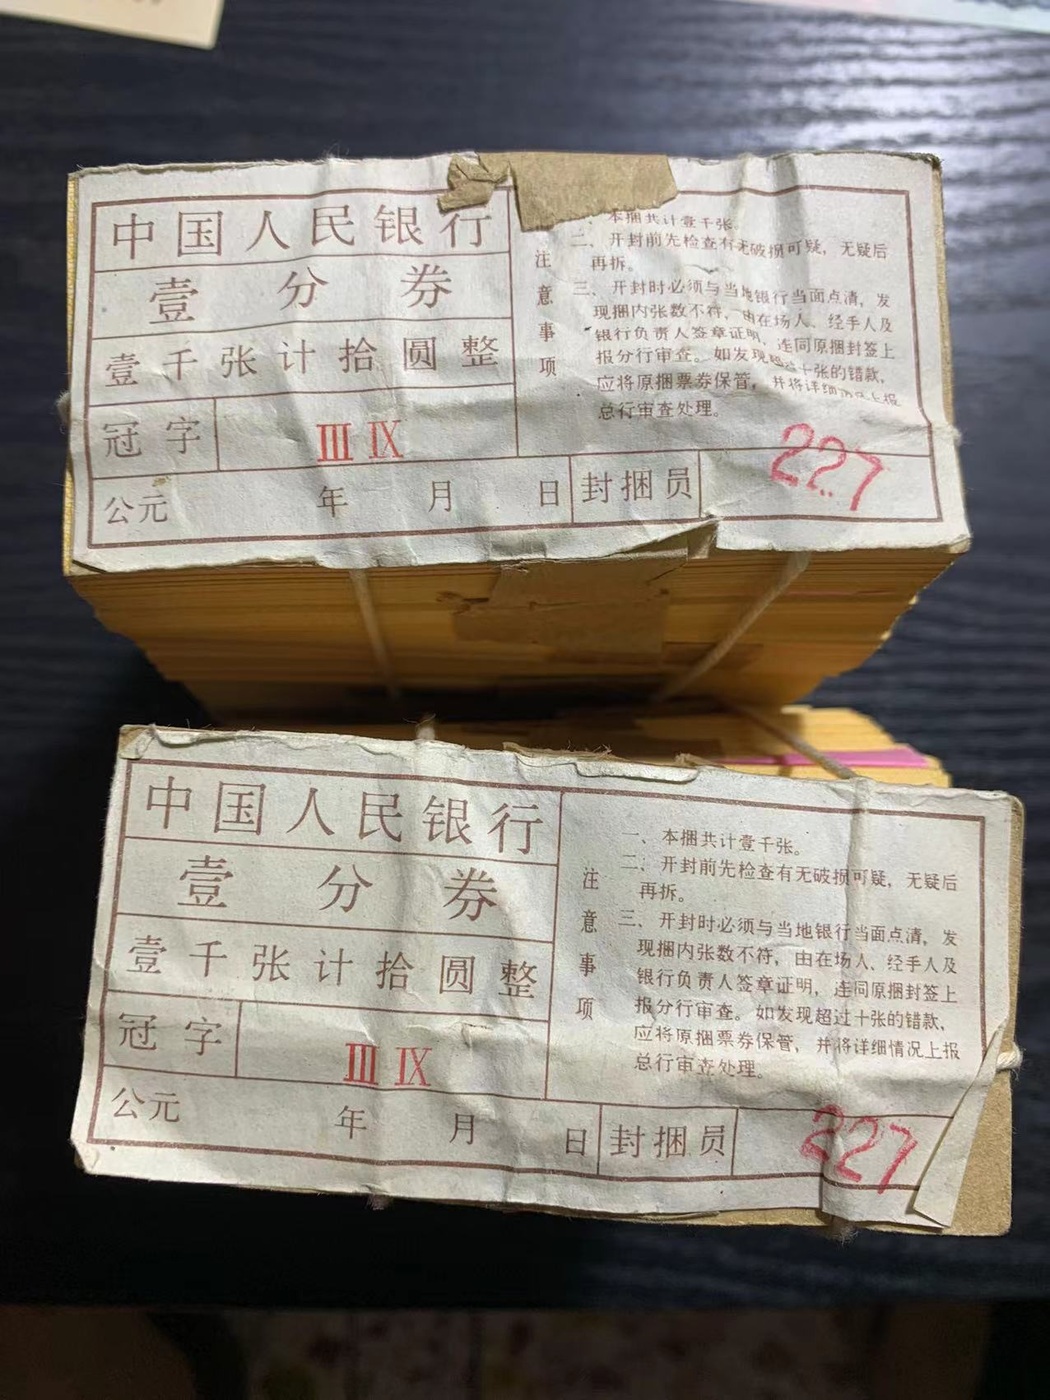 中国人民银行
壹分券
壹千张计拾圆整
冠字 III IX
公元 年 月 日 封捆员 227
注意事项
本捆共计壹千张。
二、开封前先检查有无破损可疑，无疑后
再拆。
三、开封时必须与当地银行当面点清，发
现捆内张数不符，由在场人、经手人及
银行负责人签章证明，连同原捆封签上
报分行审查。如发现超过十张的错款，
应将原捆票券保管，并将详细情况上报
总行审查处理。
中国人民银行
壹分券
壹千张计拾圆整
冠字 III IX
公元 年 月 日 封捆员 227
注意事项
一、本捆共计壹千张。
二、开封前先检查有无破损可疑，无疑后
再拆。
三、开封时必须与当地银行当面点清，发
现捆内张数不符，由在场人、经手人及
银行负责人签章证明，连同原捆封签上
报分行审查。如发现超过十张的错款，
应将原捆票券保管，并将详细情况上报
总行审查处理。